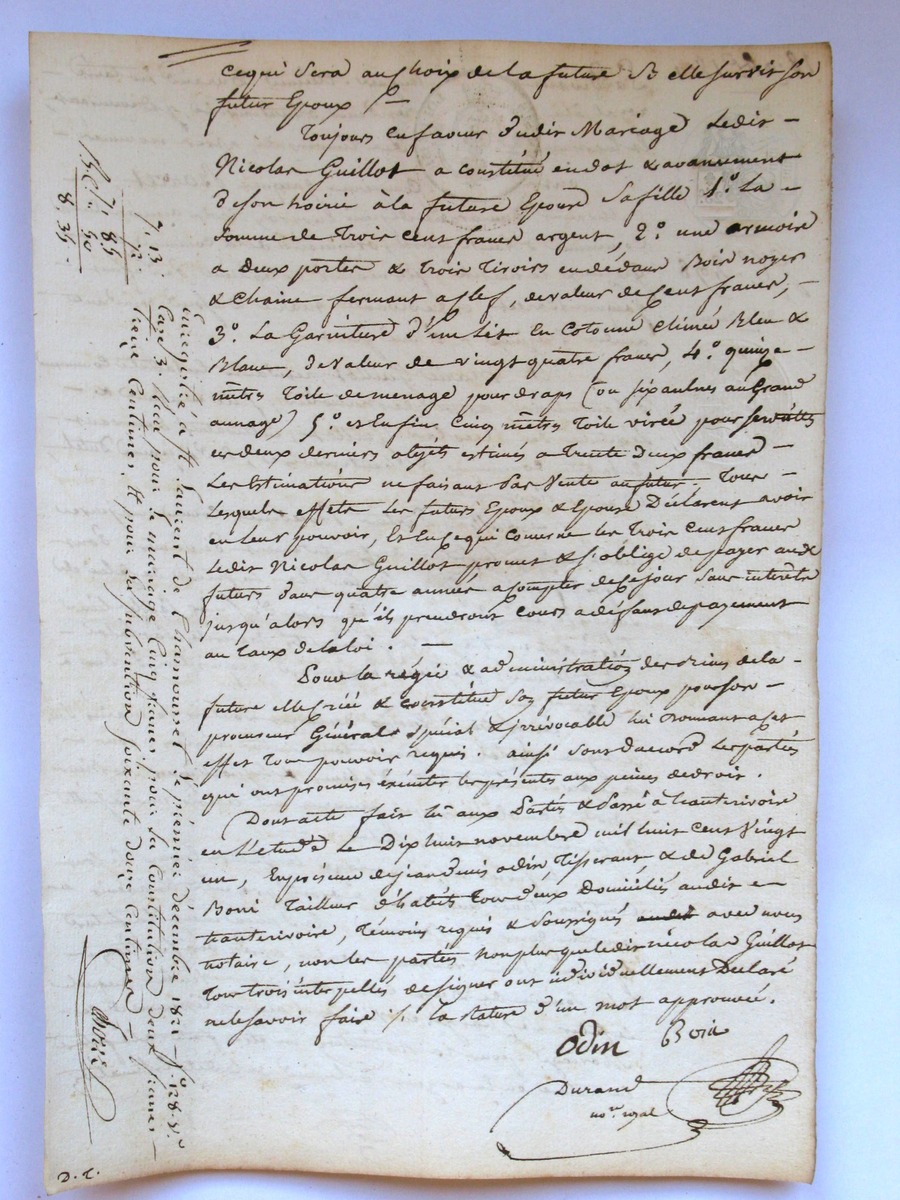 ce qui sera au choix de la future si elle survit son
futur Epoux /. —
Toujours en faveur dudit Mariage Ledit —
Nicolas Guillot a constitué en dot & avancement
d'eson hoirie à la future Epouse Sa fille 1.° La —
Somme de Trois Cent francs argent, 2.° une armoire
a Deux portes & Trois Tiroirs en dédans Bois noyer
& Chaine fermant a clef, de valeur de Cent francs, —
3.° La Garniture d'un Lit En Cotonne Bleu &
Blanc, de Valeur de vingt quatre francs, 4.° quinze —
mètres Toile de menage pour draps (ou six aulnes au Grand
aunage) 5.° et Enfin Cinq mètres Toile virée pour serviettes
ces deux derniers objéts estimés a Trente Deux francs —
Les Estimations ne faisant pas Vente au futur. Tous —
Lesquels effets Les futurs Epoux & Epouse Déclarent avoir
en Leur pouvoir, Et En ce qui Concerne les Trois Cent francs
Ledit Nicolas Guillot promet & s'oblige de payer aux
futurs dans quatre années a compter de ce jour Sans interêts
jusqu'alors qu'ils prendront Cours a défaut de payement
au Taux de la Loi. —
Pour la régie & administration des droits de la —
future elle créé & constitué Son futur Epoux pour son —
procureur Général Spécial & irrévocable lui Donnant a cet
effet Tous pouvoir requis. ainsi Sont d'accord Les parties
qui ont promises éxécuter les présentes aux peines de droit.
Dont acte fait lû aux Parties & Passé à hauterivoire
en L'etude Le Dix huit novembre mil huit cent Vingt
un, En présence de jean denis odin, Tisserant & de Gabriel
Boni Tailleur d'habits Tous deux Domiciliés audit —
hauterivoire, Témoins requis & Soussignés audit avec nous
notaire, non les parties non plus que ledit nicolas Guillot
Tous trois interpellés de signer ont individuellement Déclaré
ne le savoir faire /. la rature d'un mot approuvée.
Odin
Boni
Durand
no.re royal
Enregistré à St. Laurent de Chamousset le premier décembre 1821 — f.° 128. v.°
Case 3. Reçu pour le mariage Cinq francs, pour la Constitution deux francs —
treize Centimes, & pour la subvention soixante douze Centimes —
7. 13
72
7. 85
50
8. 35
D. T.